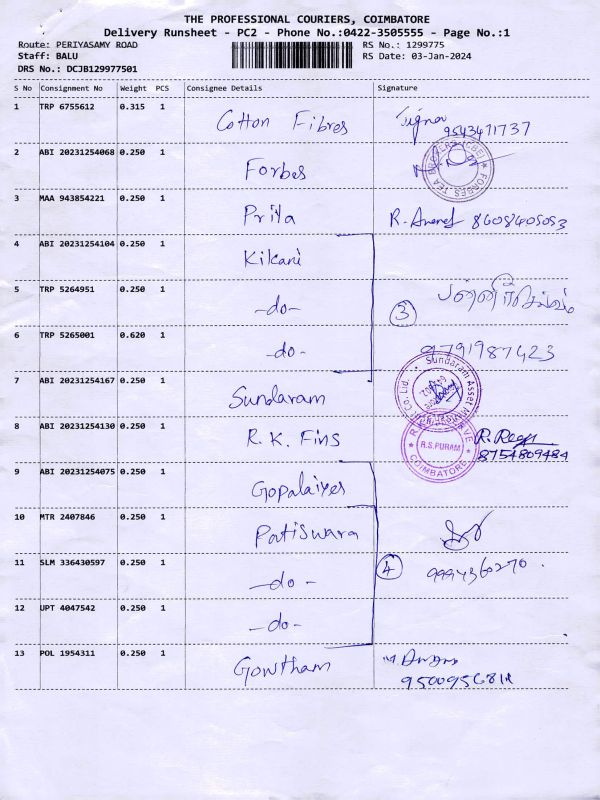 THE PROFESSIONAL COURIERS, COIMBATORE
Delivery Runsheet - PC2 - Phone No.:0422-3505555 - Page No.:1
Route: PERIYASAMY ROAD
Staff: BALU
DRS No.: DCJB129977501
RS No.: 1299775
RS Date: 03-Jan-2024
S No Consignment No Weight PCS Consignee Details Signature
1 TRP 6755612 0.315 1 Cotton Fibres
9543471737
2 ABI 20231254068 0.250 1 Forbes
FORBES TEA BROKERS (CBE)
3 MAA 943854221 0.250 1 Priya R. Anand 8608405053
4 ABI 20231254104 0.250 1 Kikani
5 TRP 5264951 0.250 1 -do- 3 பன்னீர்செல்வம்
6 TRP 5265001 0.620 1 -do- 9791987423
7 ABI 20231254167 0.250 1 Sundaram
Sundaram Asset Co. Ltd.
8 ABI 20231254130 0.250 1 R.K. Fins
R.S.PURAM
COIMBATORE
8754809484
9 ABI 20231254075 0.250 1 Gopalaiyes
10 MTR 2407846 0.250 1 Patiswara
11 SLM 336430597 0.250 1 -do- 4 9994360270
12 UPT 4047542 0.250 1 -do-
13 POL 1954311 0.250 1 Gowtham